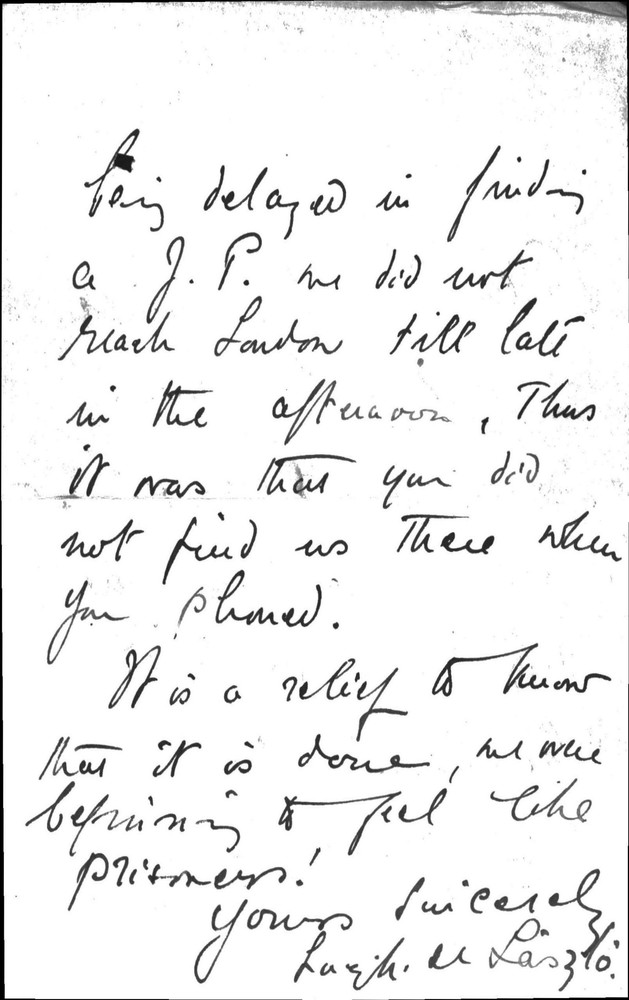 being delayed in finding
a J. P. we did not
reach London till late
in the afternoon, Thus
it was that you did
not find us there when
you phoned.
It is a relief to know
that it is done, we were
beginning to feel like
prisoners!
Yours sincerely
de László.